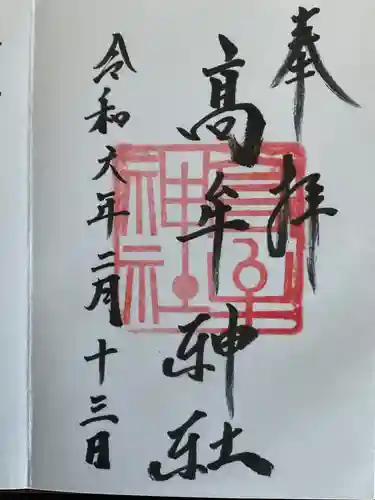 奉拝
高牟神社
令和六年二月十三日
高牟神社